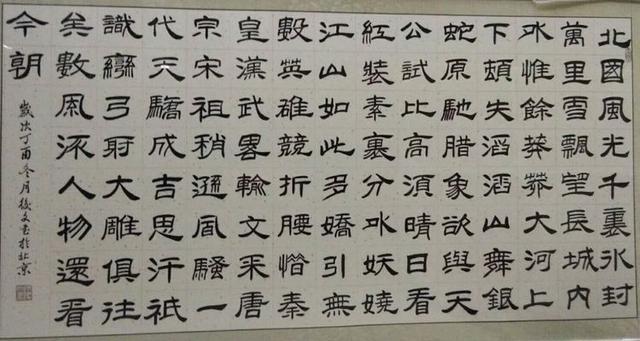 北國風光千裏氷封
萬里雪飄望長城內
外惟餘莽莽大河上
下頓失滔滔山舞銀
蛇原馳腊象欲與天
公試比高須晴日看
紅裝素裹分外妖嬈
江山如此多嬌引無
數英雄競折腰惜秦
皇漢武畧輸文采唐
宗宋祖稍遜風騷一
代天驕成吉思汗祇
識彎弓射大雕俱往
矣數風流人物還看
今朝
歲次丁酉冬月文書於北京